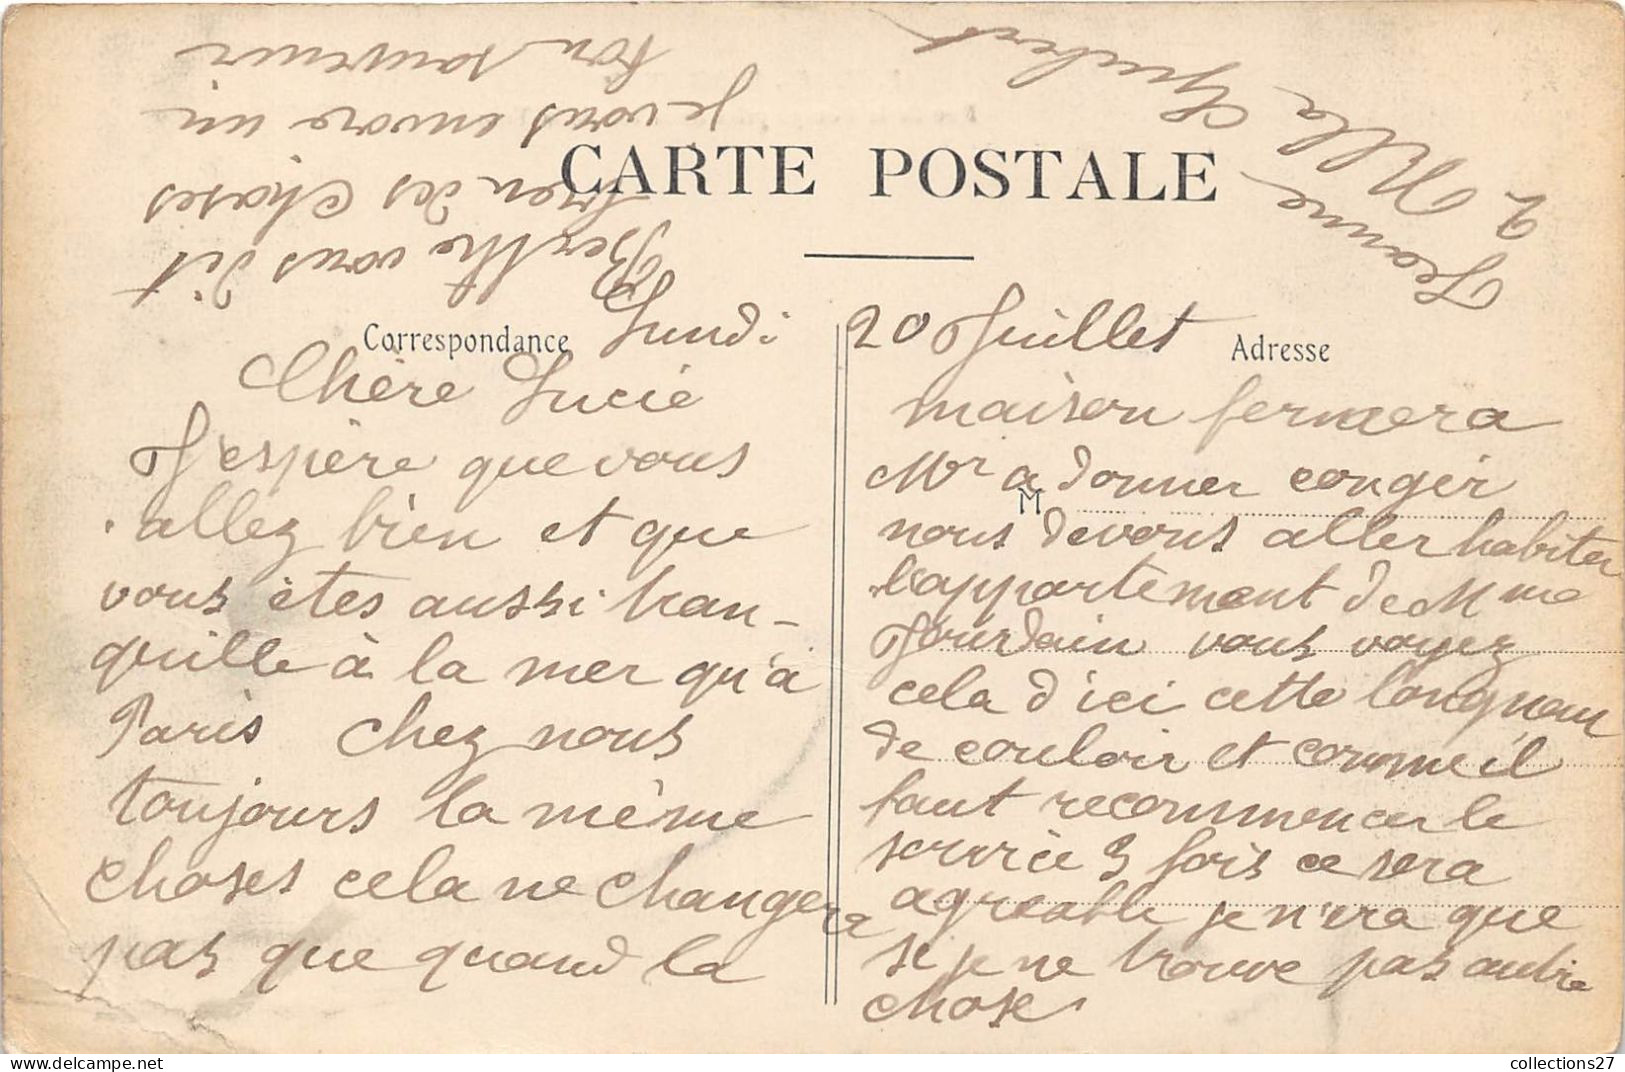 CARTE POSTALE
Correspondance
Adresse
M
Lundi 20 Juillet
Chère Lucie
J'espère que vous
allez bien et que
vous êtes aussi tran-
quille à la mer qu'à
Paris chez nous
toujours la même
choses cela ne changera
pas que quand la
maison fermera
Mr a donner congér
nous devons aller habiter
l'appartement de Mme
Jourdain vous voyez
cela d'ici cette longueur
de couloir et comme il
faut recommencer le
service 3 fois ce sera
agréable je n'irai que
si je ne trouve pas autre
chose
Berthe vous dit
bien des choses
Je vous envoie un
bon souvenir
Jeanne
collections27